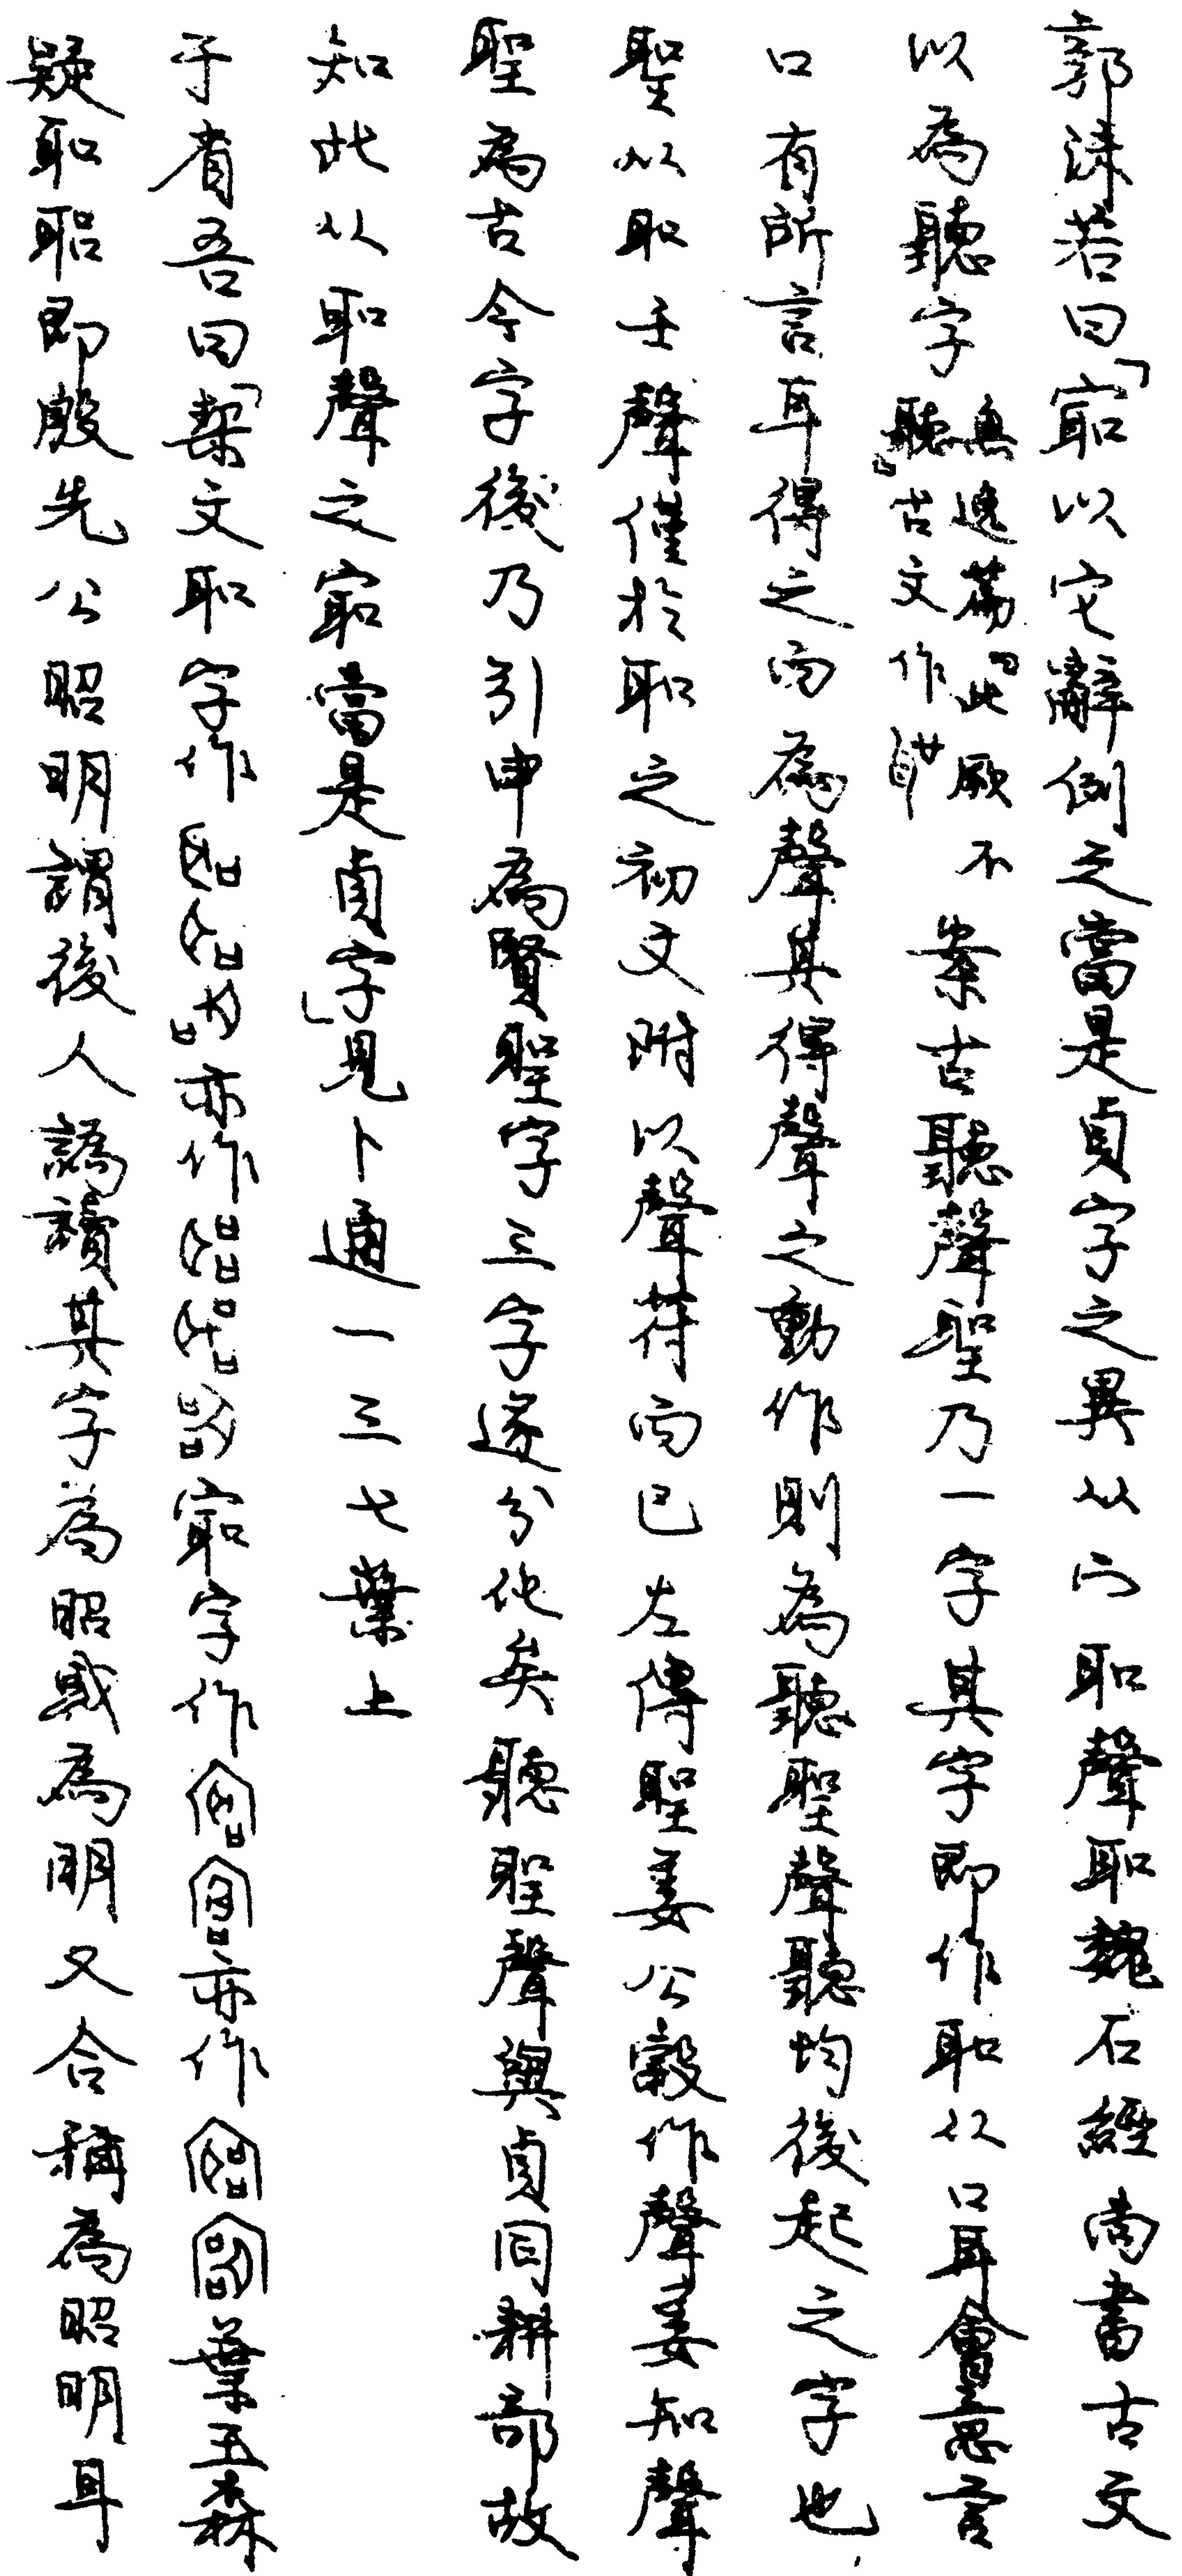 郭沫若曰「𡧢以它辭例之當是貞字之異从宀耴聲耴魏石經尚書古文
以為聽字無逸篇「此厥不聽」古文作案古聽聲聖乃一字其字即作耴从口耳會意言
口有所言耳得之而為聲其得聲之動作則為聽聖聲聽均後起之字也
聖从耴壬聲僅於耴之初文附以聲符而已左傳聖姜公穀作聲姜知聲
聖為古今字後乃引申為賢聖字三字遂分化矣聽聖聲與貞同耕部故
知此从耴聲之𡧢當是貞字」見卜通一三七葉上
于省吾曰「栔文耴字作亦作𡧢字作亦作葉玉森
疑耴即殷先公昭明謂後人譌讀其字為昭或為明又合稱為昭明耳